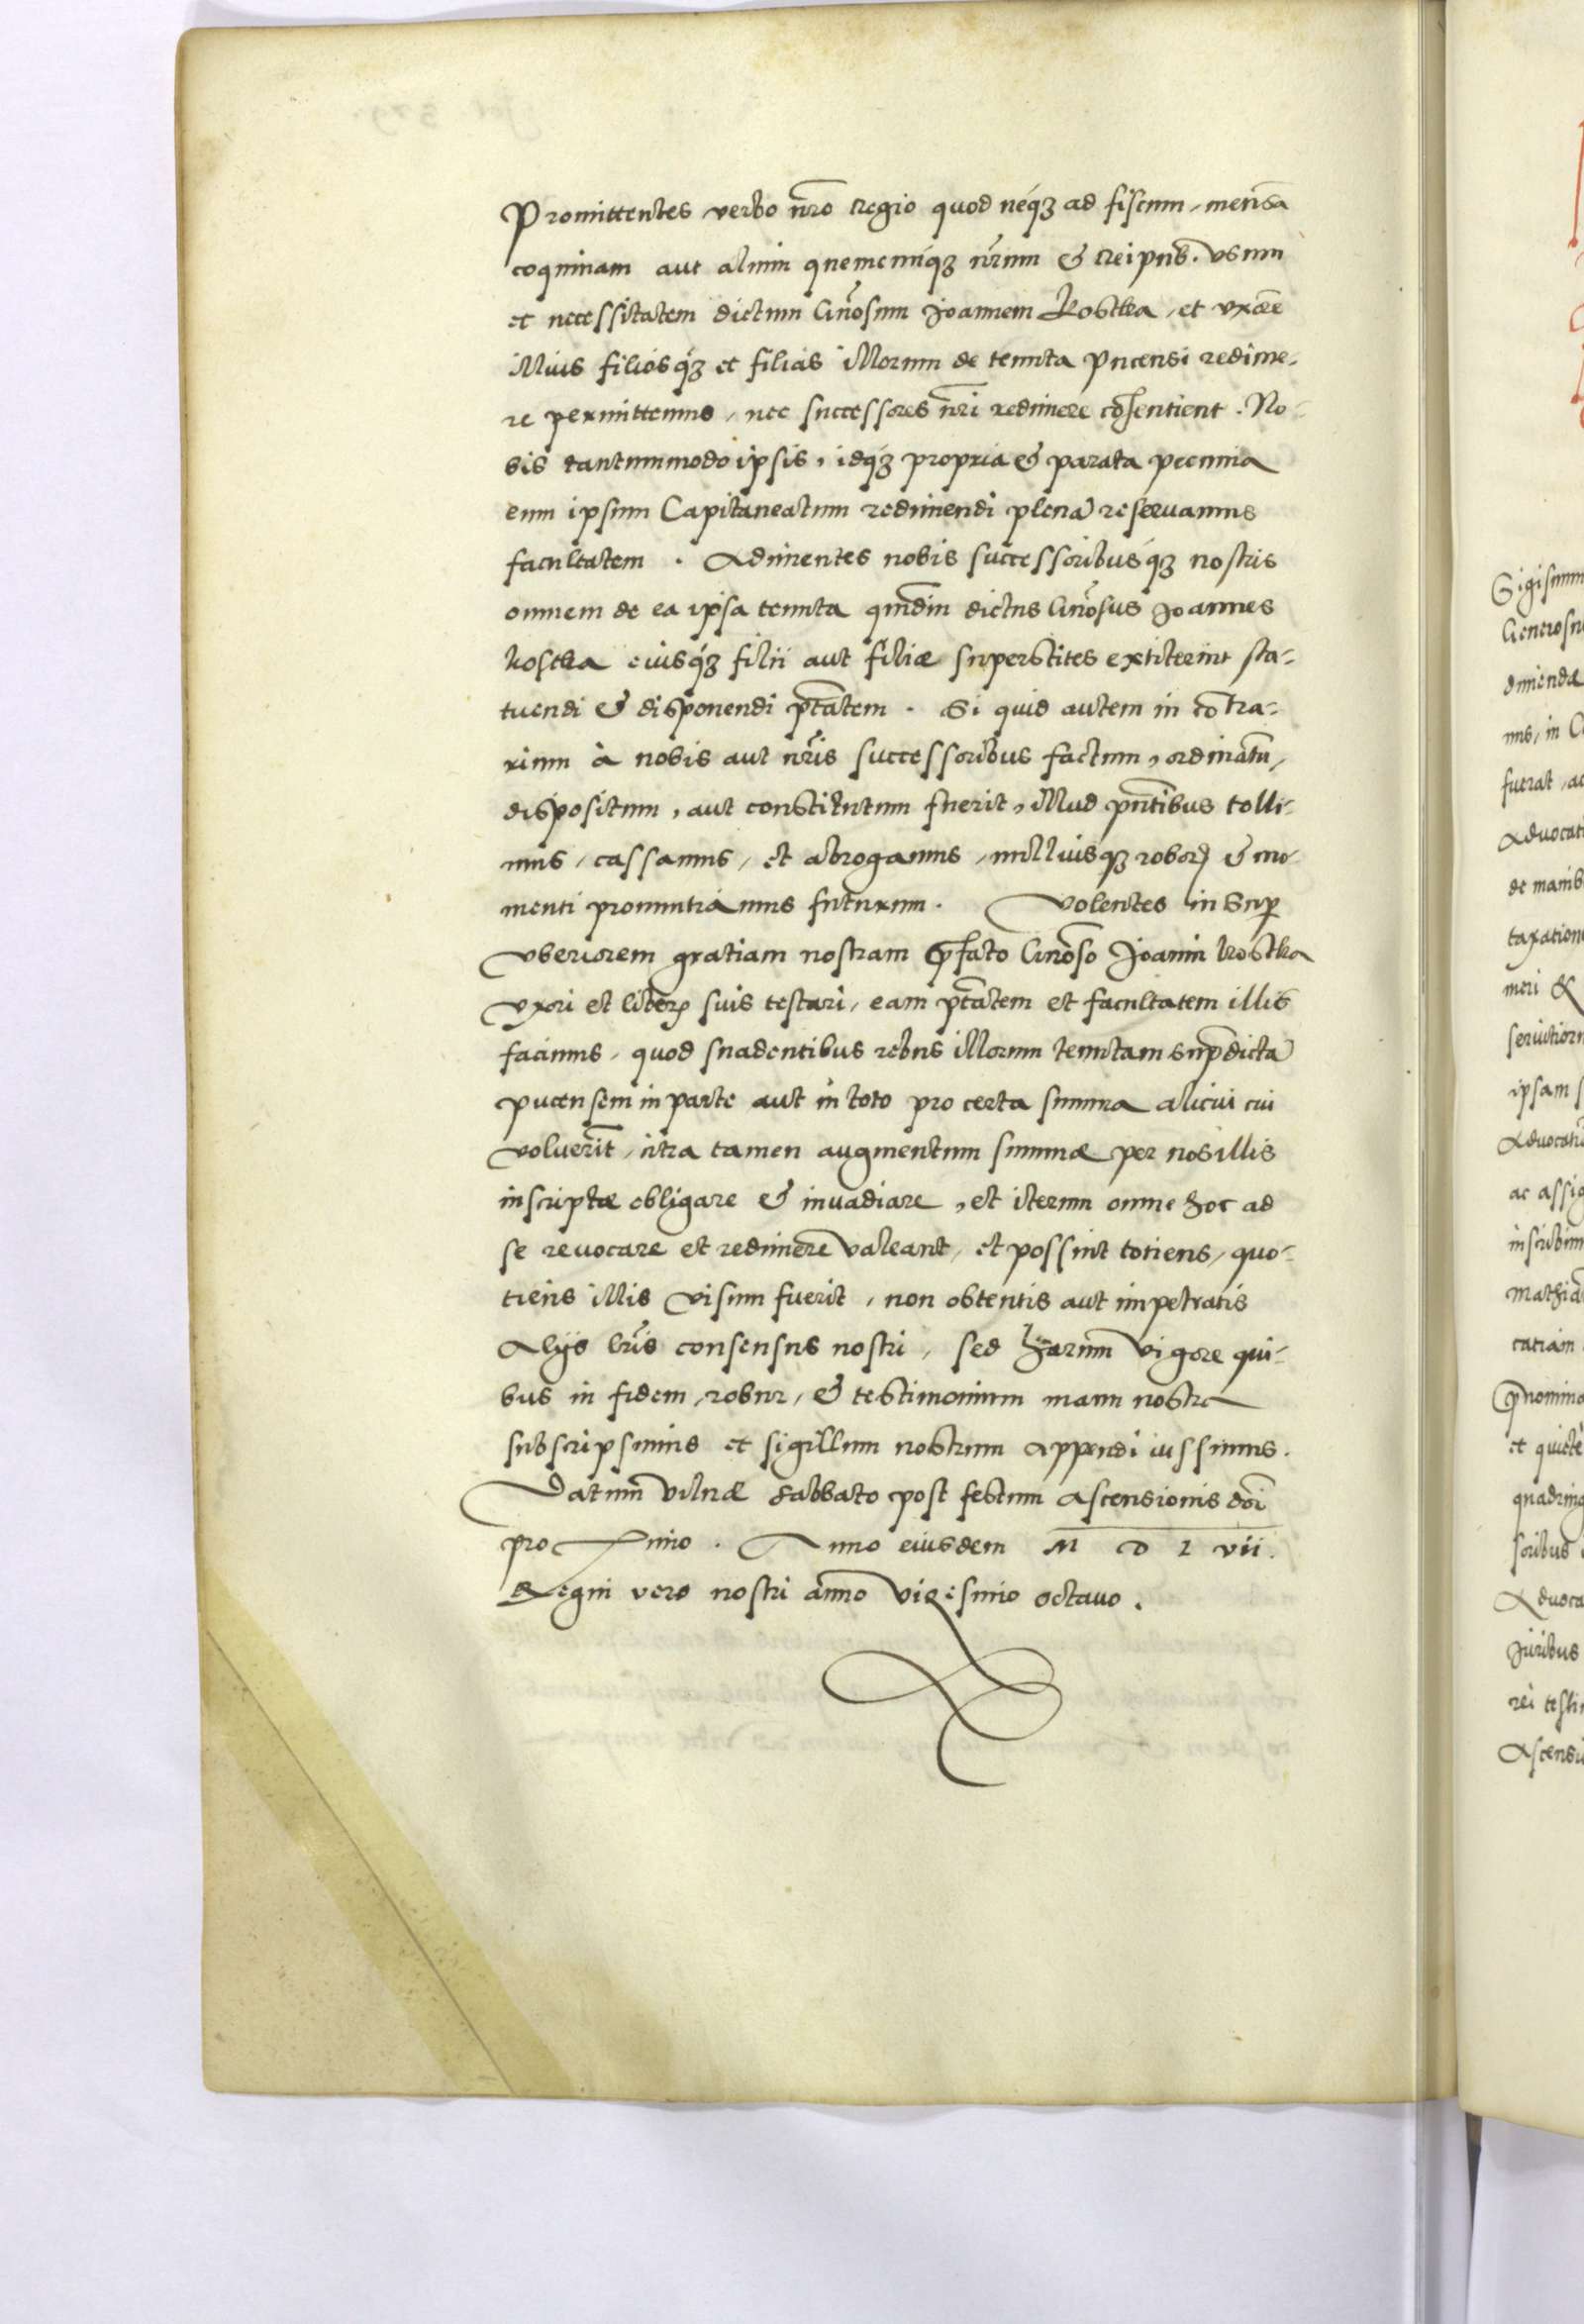 Promittentes verbo nr̃o regio quod neq́ꝫ ad fiscum, mensã
coquinam aut alium quemcunq́ꝫ nr̃um & reipub. vsum
et necessitatem dictum Gn̄osum Joannem Kostka, et vxorẽ
illius filiosq́ꝫ et filias illorum de tenuta Pucensi redime-
re permittemus, nec successores nr̃i redimere cõsentient. No-
bis tantummodo ipsis, idq́ꝫ propria & parata pecunia
eum ipsum Capitaneatum redimendi plenã reseruamus
facultatem. Adimentes nobis successoribusq́ꝫ nostris
omnem de ea ipsa tenuta quãdiu dictus Gn̄osus Joannes
kostka eiusq́ꝫ filii aut filiæ superstites extiterint sta-
tuendi & disponendi ptãtem. Si quid autem in cõtra-
rium à nobis aut nr̃is successoribus factum, ordinatũ,
dispositum, aut constitutum fuerit, illud pñtibus tolli-
mus, cassamus, et abrogamus, nulliusqꝫ roboꝝ & mo-
menti pronuntiamus futurum. Volentes insuꝑ
vberiorem gratiam nostram p̃fato Gn̄oso Joanni kostka
vxori et liberꝭ suis testari, eam ptãtem et facultatem illis
facimus, quod suadentibus rebus illorum tenutam sup̃dictã
pucensem in parte aut in toto pro certa summa alicui cui
voluerĩt, citra tamen augmentum summæ per nos illis
inscriptæ obligare & inuadiare, et iterum omne hoc ad
se reuocare et redimere valeant, et possint totiens, quo-
tiens illis visum fuerit, non obtentis aut impetratis
Alijs lr̃is consensus nostri, sed harum vigore qui-
bus in fidem, robur, & testimonium manu nostra
subscripsimus et sigillum nostrum appendi iussimus.
Datum vilnæ sabbato post festum ascensionis dñi
proximo. Anno eiusdem M D L vii.
Regni vero nostri anno vigesimo octauo.